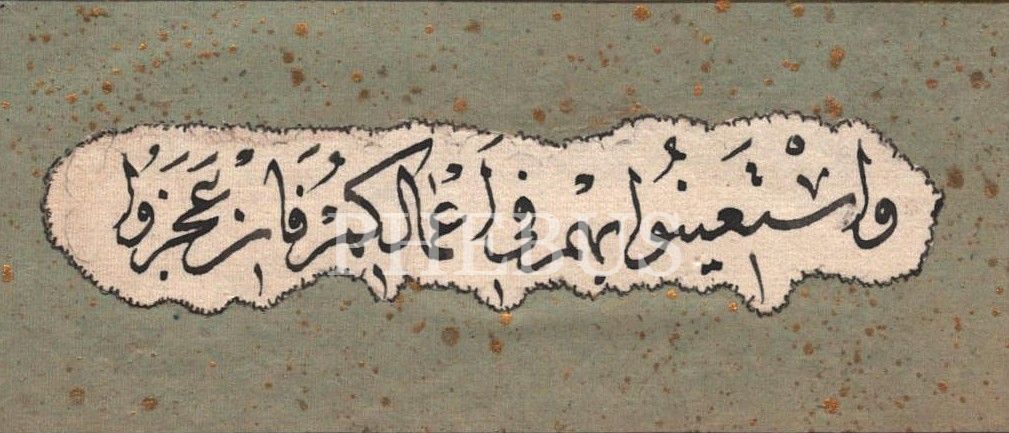 وَاسْتَعِينُوا بِهِمْ فِى اَعْمَالِكُمْ فَاِنْ عَجَزُوا
PHEBUS